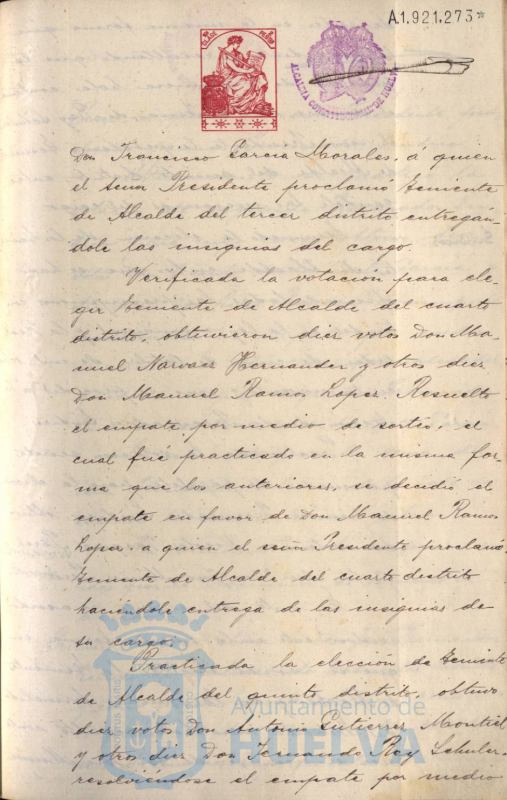 A.1.921.273*
ALCALDIA CONSTITUCIONAL DE HUELVA
Don Francisco Garcia Morales, á quien
el señor Presidente proclamó Teniente
de Alcalde del tercer distrito entregán-
dole las insignias del cargo.
Verificada la votación para ele-
gir Teniente de Alcalde del cuarto
distrito, obtuvieron diez votos Don Ma-
nuel Narvaez Hernandez y otros diez
Don Manuel Ramos Lopez. Resuelto
el empate por medio de sorteo, el
cual fué practicado en la misma for-
ma que los anteriores, se decidió el
empate en favor de Don Manuel Ramos
Lopez, a quien el señor Presidente proclamó
Teniente de Alcalde del cuarto distrito
haciéndole entrega de las insignias de
su cargo.
Practicada la elección de Teniente
de Alcalde del quinto distrito, obtuvo
diez votos Don Antonio Gutierrez Montiel
y otros diez Don Fernando Rey Schuler
resolviéndose el empate por medio
Ayuntamiento de
HUELVA